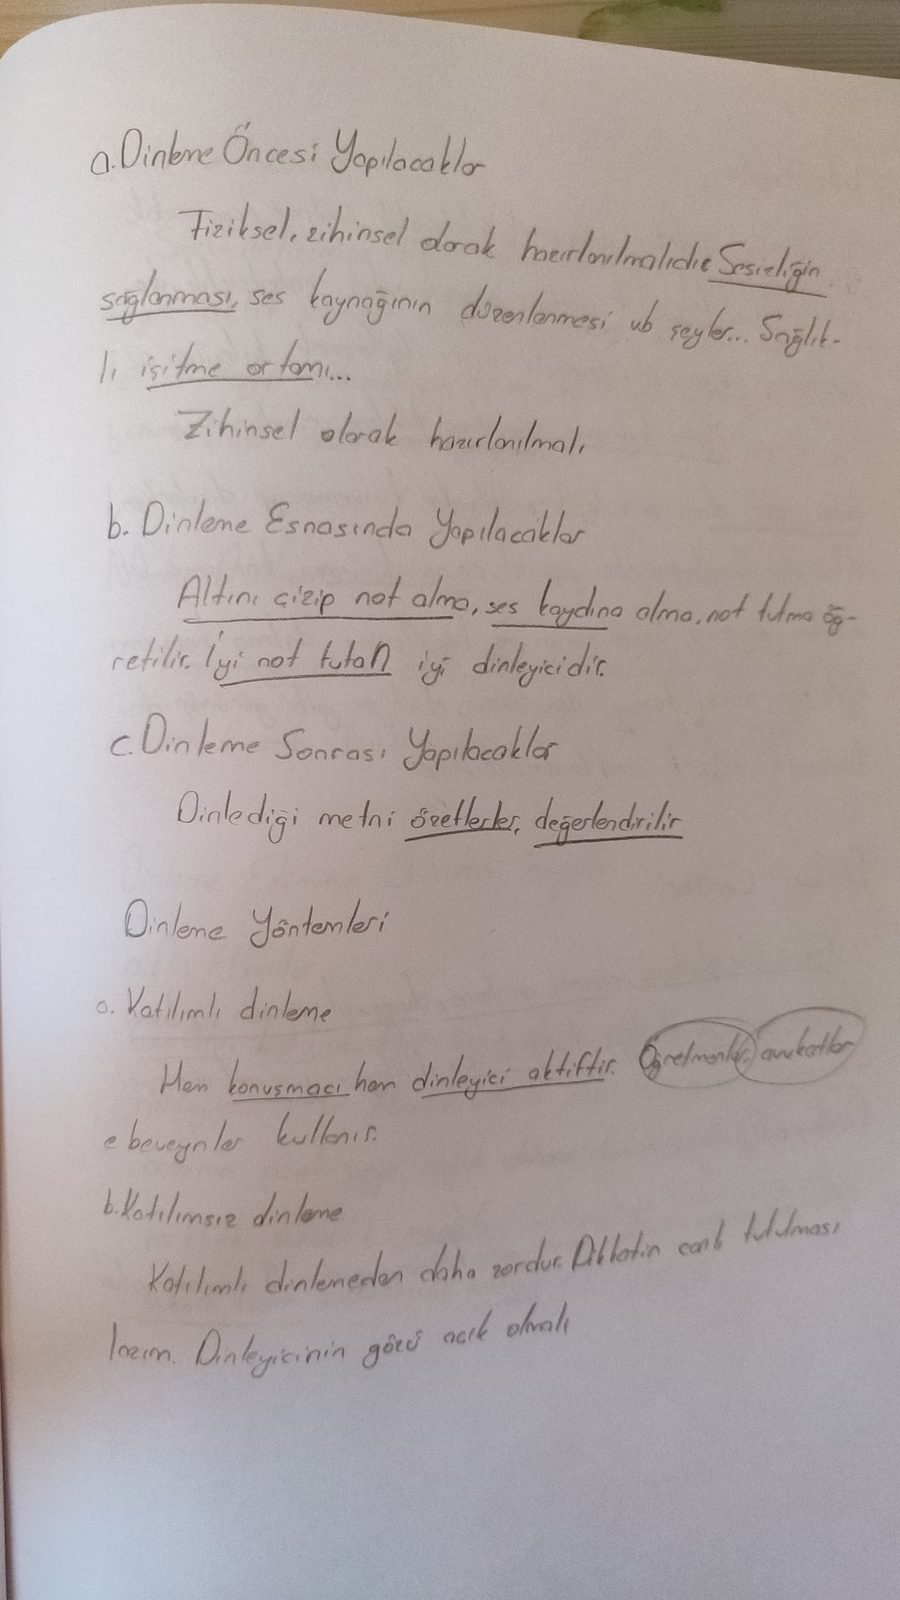 a. Dinleme Öncesi Yapılacaklar
Fiziksel, zihinsel olarak hazırlanılmalıdır. Sesizliğin
sağlanması, ses kaynağının düzenlenmesi vb şeyler... Sağlık-
lı işitme ortamı...
Zihinsel olarak hazırlanılmalı
b. Dinleme Esnasında Yapılacaklar
Altını çizip not alma, ses kaydına alma, not tutma öğ-
retilir. İyi not tutan iyi dinleyicidir.
c. Dinleme Sonrası Yapılacaklar
Dinlediği metni özetlerler, değerlendirilir
Dinleme Yöntemleri
a. Katılımlı dinleme
Hem konuşmacı hem dinleyici aktiftir. Öğretmenler, avukatlar
ebeveynler kullanır.
b. Katılımsız dinleme
Katılımlı dinlemeden daha zordur. Dikkatin canlı tutulması
lazım. Dinleyicinin gözü açık olmalı